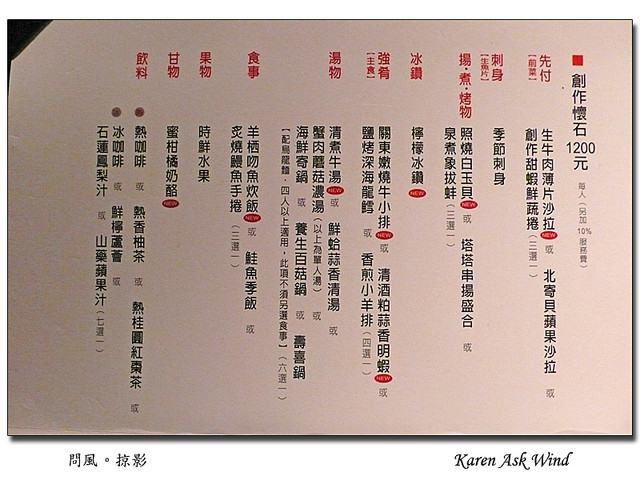 ■ 創作懷石 1200元 每人（另加10%服務費）
先付【前菜】 生牛肉薄片沙拉 NEW 或 北寄貝蘋果沙拉 或
創作甜蝦鮮蔬捲（三選一）
刺身【生魚片】 季節刺身
揚‧煮‧烤物 照燒白玉貝 NEW 或 塔塔串揚盛合 或
泉煮象拔蚌（三選一）
冰鑽 檸檬冰鑽 NEW
強肴【主食】 關東嫩燒牛小排 NEW 或 清酒粕蒜香明蝦 NEW 或
鹽烤深海龍鱈 或 香煎小羊排（四選一）
湯物 清煮牛湯 NEW 或 鮮蛤蒜香清湯 或
蟹肉蘑菇濃湯（以上為單人湯）或
海鮮寄鍋 或 養生百菇鍋 或 壽喜鍋
【配烏龍麵‧四人以上適用，此項不須另選食事】（六選一）
食事 羊栖吻魚炊飯 NEW 或 鮭魚季飯 或
炙燒鰻魚手捲（三選一）
果物 時鮮水果
甘物 蜜柑橘奶酪 NEW
飲料 熱 熱咖啡 或 熱香柚茶 或 熱桂圓紅棗茶 或
冰 冰咖啡 或 鮮檸蘆薈 或
石蓮鳳梨汁 或 山藥蘋果汁（七選一）
問風。掠影
Karen Ask Wind